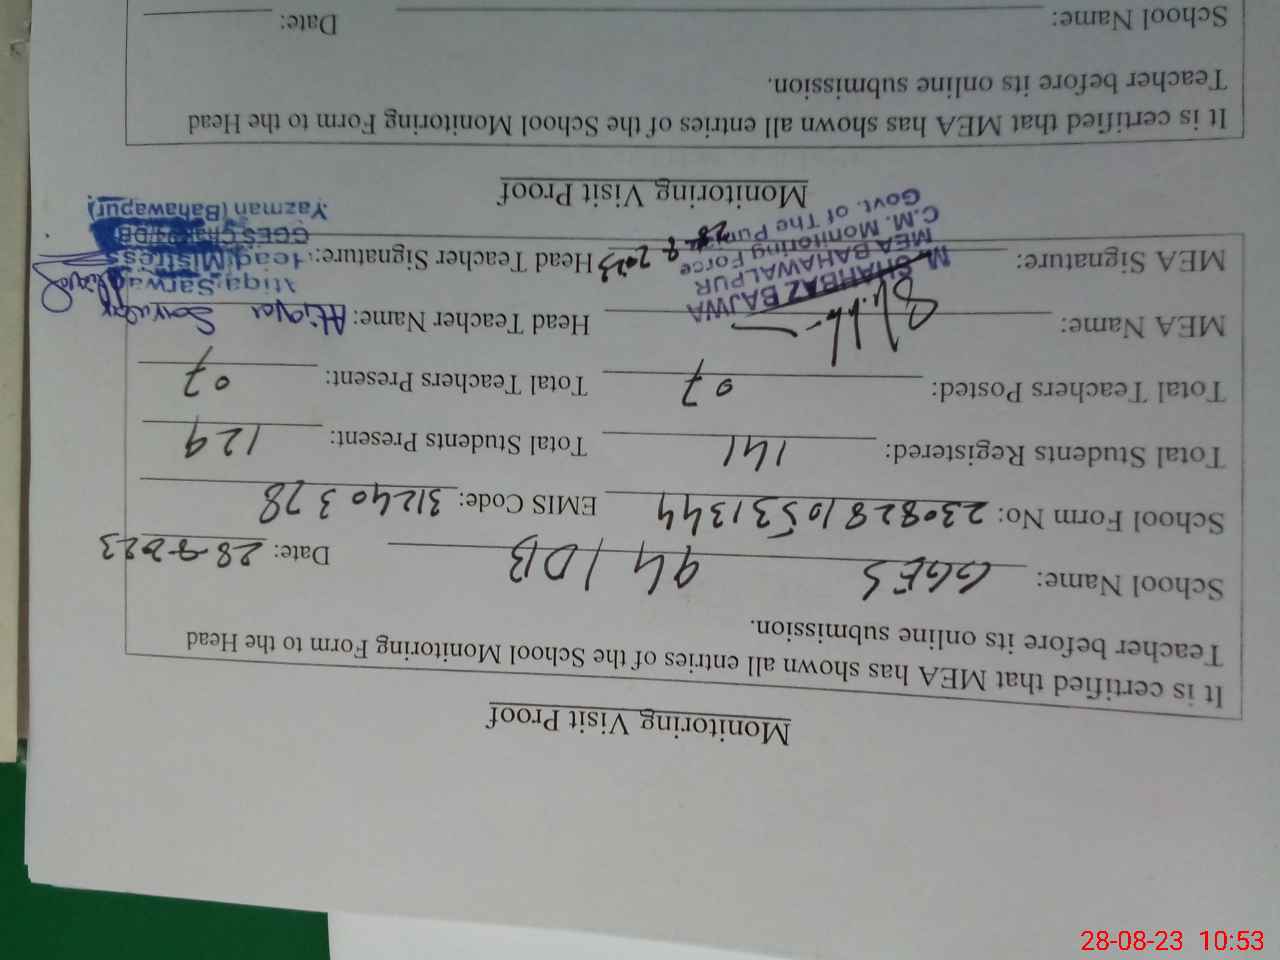 Monitoring Visit Proof
It is certified that MEA has shown all entries of the School Monitoring Form to the Head
Teacher before its online submission.
School Name: GGES 94/DB Date: 28-8-2023
School Form No: 23082810531344 EMIS Code: 31240378
Total Students Registered: 141 Total Students Present: 129
Total Teachers Posted: 07 Total Teachers Present: 07
MEA Name: Head Teacher Name: Atiqa Sarwar
M.SHAHBAZ BAJWA
MEA BAHAWALPUR
C.M. Monitoring Force
Govt. of The Punjab
MEA Signature: 28-8-2023 Head Teacher Signature:
Atiqa Sarwar
Head Mistress
GGES Chak 94/DB
Yazman (Bahawapur)
Monitoring Visit Proof
It is certified that MEA has shown all entries of the School Monitoring Form to the Head
Teacher before its online submission.
School Name: Date:
28-08-23 10:53